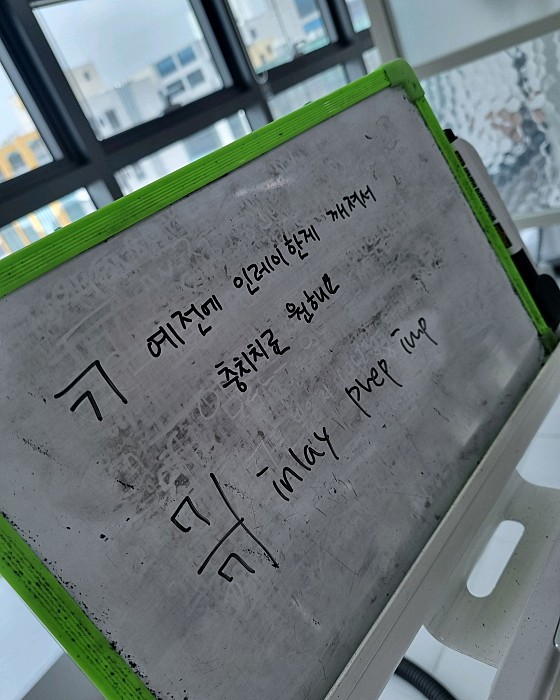 7 예전에 인레이한게 깨져서
충치치료 원해요
inlay prep imp